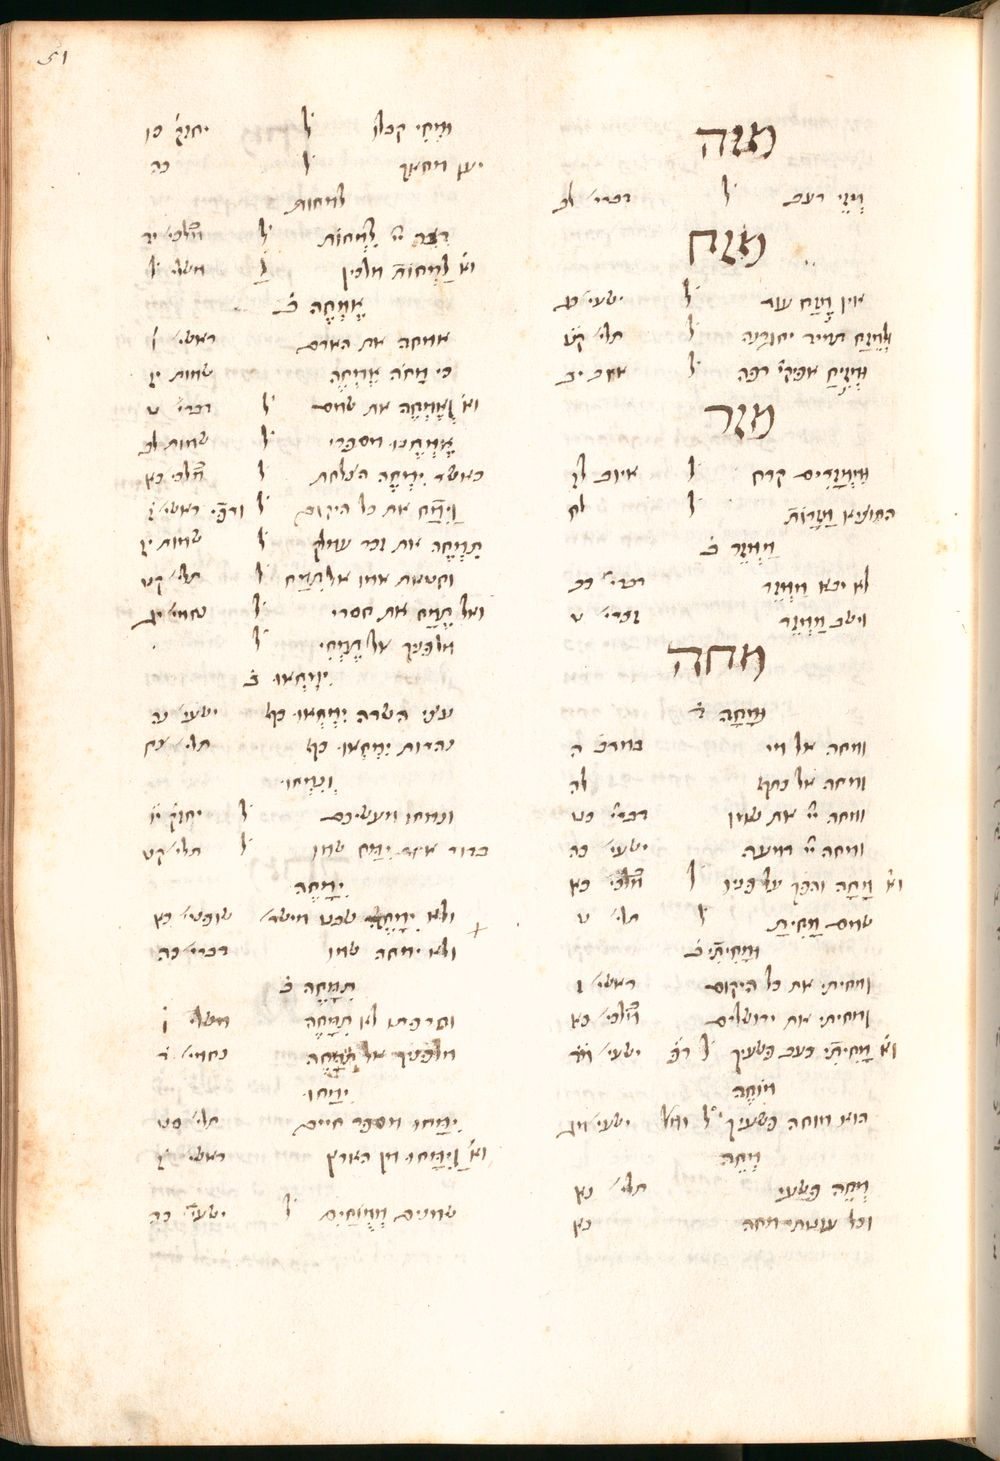 51
מזה
מְזֵי רעב ל דברי׳ לב
מזח
אין מֵזַח עוד ל ישעי׳
וּלְמֵזַח תמיד יחגרה ל תלי׳ קט
וּמְזִיחַ אפיקי׳ רפה ל איוב יב
מזר
וּמִמְּזָרִים קרה ל איוב לז
התוציא מַזָּרוֹת ל לח
מַמְזֵר ב̇
לא יבא מַמְזֵר דברי׳ כג
וישב מַמְזֵר זכרי׳ ט
מחה
וּמָחָה
ומחה אל מי במדב׳ ה
ומחה אל כתף לה
ומחה יי׳ את שמו דברי׳ כט
ומחה יי׳ דמעה ישעי׳ כה
וא׳ מָחָה והפך על פניו ל מלכי׳ כא
שמם מָחִיתָ ל תלי׳ ט
וּמָחִיתִי ב̇
ומחיתי את כל היקום ראשי׳ ז
ומחיתי את ירושלים מלכי׳ כא
וא׳ מָחִיתִי כעב פשעיך ל ישעי׳ מד
מוֹחֶה
הוא מוחה פשעיך ל ישעי׳ מג
מְחֵה
מְחֵה פְשָׁעָי תלי׳ נא
וכל עונותי מחה נא
וּמְחִי קבלו ל יחזק׳ כו
יען מחאך ל כה
למחות
דבר יי׳ לִמְחוֹת ל מלכי׳ יד
וא׳ לַמְחוֹת מלכין ל משלי ל
אֶמְחֶה ב̇
אמחה את האדם ראשי׳ ו
כי מָחֹה אֶמְחֶה שמות יז
וא׳ וְאֶמְחֶה את שמם ל דברי׳ ט
אֶמְחֶנּוּ מספרי ל שמות לב
כאשר יִמְחֶה הצלחת ל מלכי׳ כא
וַיִּמַח את כל היקום ל ראשי׳ ז
תִּמְחֶה את זכר עמלק ל שמות
וחטאת אמו אל תִּמַּח ל תלי׳ קט
ואל תֶּמַח את חסדי ל נחמי׳ יג
מלפניך אל תֶּמְחִי ל
יִמְחֲאוּ ב̇
עצי השדה יִמְחֲאוּ כף ישעי׳ נה
נהרות יִמְחֲאוּ כף תלי׳ צח
וְנִמְחוּ
ונמחו מעשיכם ל יחזק׳ ו
בדור אחר יִמַּח שמו ל תלי׳ קט
יִמָּחֶה
ולא יִמָּחֶה שבט מישר׳ שופטי׳ כא
ולא ימחה שמו דברי׳ כה
תִּמָּחֶה ב̇
וחרפתו לא תִמָּחֶה משלי ו
מלפניך אל תִּמָּחֶה נחמי׳ ד
יִמָּחוּ
יִמָּחוּ מספר חיים תלי׳ סט
וא׳ וַיִּמָּחוּ מן הארץ ראשי׳ ז
שמנים מְמֻחָיִם ל ישעי׳ כה